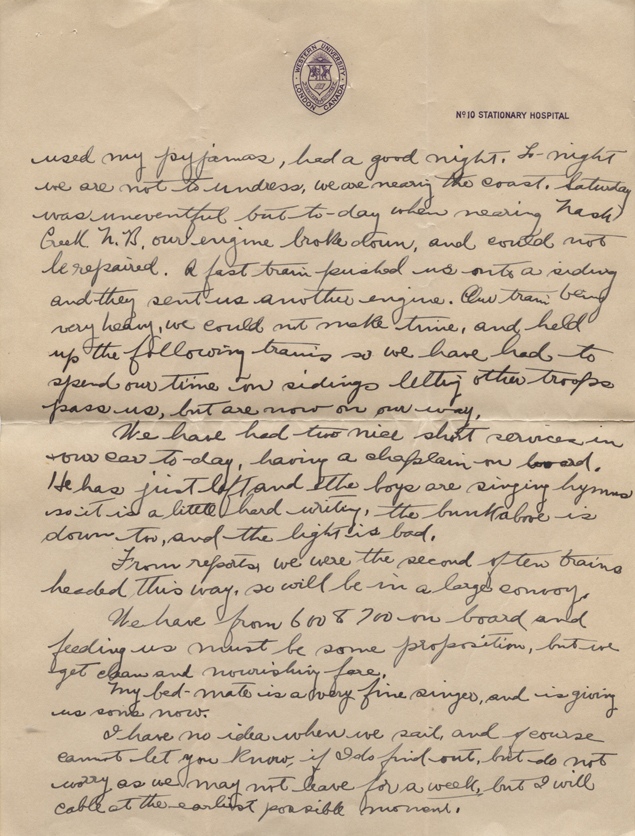 WESTERN UNIVERSITY
LONDON CANADA
Nº 10 STATIONARY HOSPITAL
used my pyjamas, had a good night. To-night
we are not to undress, we are nearing the coast. Saturday
was uneventful but to-day when nearing Nash
Creek N.B. our engine broke down, and could not
be repaired. A fast train pushed us onto a siding
and they sent us another engine. Our train being
very heavy, we could not make time, and held
up the following trains so we have had to
spend our time on sidings letting other troops
pass us, but are now on our way.
We have had two nice short services in
our car to-day, having a chaplain on board.
He has just left and the boys are singing hymns
so it is a little hard writing, the bunk above is
down too, and the light is bad.
From reports, we were the second of ten trains
headed this way, so will be in a large convoy.
We have from 600 & 700 on board and
feeding us must be some proposition, but we
get clean and nourishing fare.
My bed-mate is a very fine singer, and is giving
us some now.
I have no idea when we sail, and of course
cannot let you know, if I do find out, but do not
worry as we may not leave for a week, but I will
cable at the earliest possible moment.